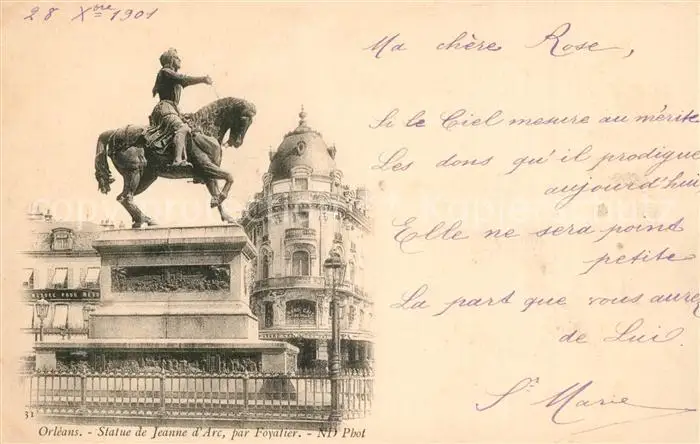 28 Xbre 1901
Ma chère Rose,
Si le Ciel mesure au mérite
Les dons qu'il prodigue
aujourd'hui
Elle ne sera point
petite
La part que vous aurez
de Lui.
Sr Marie
31
Orléans. - Statue de Jeanne d'Arc, par Foyatier. - ND Phot